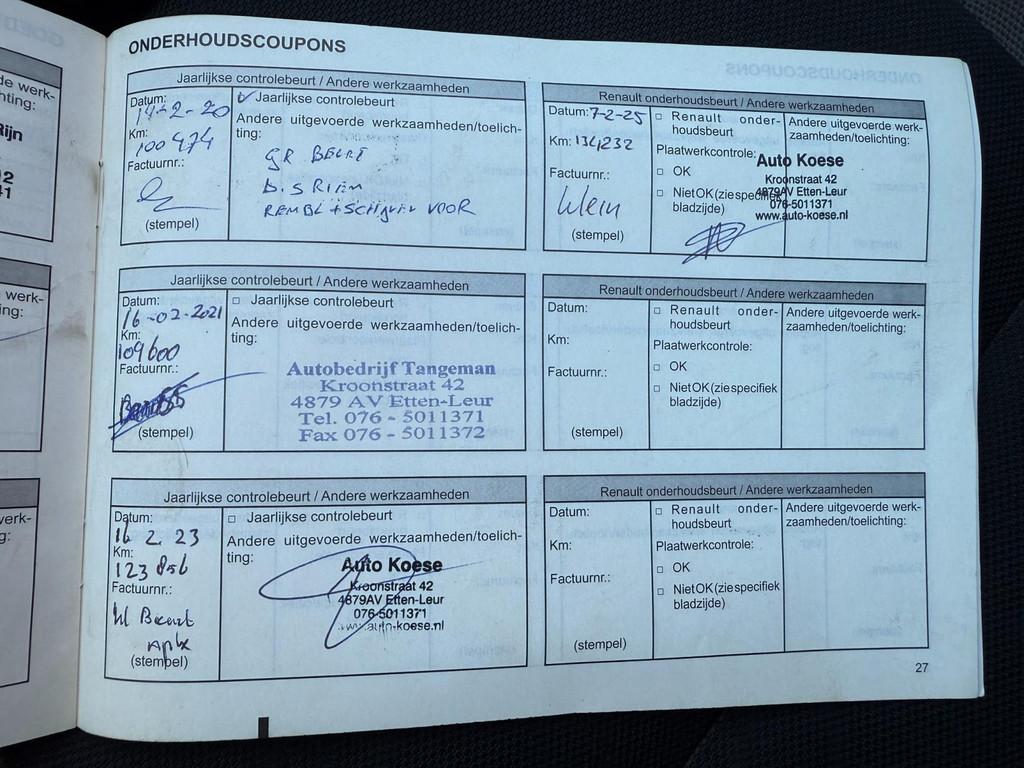 ONDERHOUDSCOUPONS
Jaarlijkse controlebeurt / Andere werkzaamheden
Datum:
14-2-20
Km:
100474
Factuurnr.:
(stempel)
✓ Jaarlijkse controlebeurt
Andere uitgevoerde werkzaamheden/toelich-
ting:
GR BEURT
D.S RIEM
REMBL + SCHIJVEN VOOR
Jaarlijkse controlebeurt / Andere werkzaamheden
Datum:
16-02-2021
Km:
109600
Factuurnr.:
(stempel)
□ Jaarlijkse controlebeurt
Andere uitgevoerde werkzaamheden/toelich-
ting:
Autobedrijf Tangeman
Kroonstraat 42
4879 AV Etten-Leur
Tel. 076 - 5011371
Fax 076 - 5011372
Jaarlijkse controlebeurt / Andere werkzaamheden
Datum:
16 2 23
Km:
123 856
Factuurnr.:
kl Beurt
Apk
(stempel)
□ Jaarlijkse controlebeurt
Andere uitgevoerde werkzaamheden/toelich-
ting:
Auto Koese
Kroonstraat 42
4879AV Etten-Leur
076-5011371
www.auto-koese.nl
Renault onderhoudsbeurt / Andere werkzaamheden
Datum: 7-2-25
Km: 134,232
Factuurnr.:
klein
(stempel)
□ Renault onder-
houdsbeurt
Plaatwerkcontrole:
□ OK
□ Niet OK (zie specifiek
bladzijde)
Andere uitgevoerde werk-
zaamheden/toelichting:
Auto Koese
Kroonstraat 42
4879AV Etten-Leur
076-5011371
www.auto-koese.nl
Renault onderhoudsbeurt / Andere werkzaamheden
Datum:
Km:
Factuurnr.:
(stempel)
□ Renault onder-
houdsbeurt
Plaatwerkcontrole:
□ OK
□ Niet OK (zie specifiek
bladzijde)
Andere uitgevoerde werk-
zaamheden/toelichting:
Renault onderhoudsbeurt / Andere werkzaamheden
Datum:
Km:
Factuurnr.:
(stempel)
□ Renault onder-
houdsbeurt
Plaatwerkcontrole:
□ OK
□ Niet OK (zie specifiek
bladzijde)
Andere uitgevoerde werk-
zaamheden/toelichting:
27